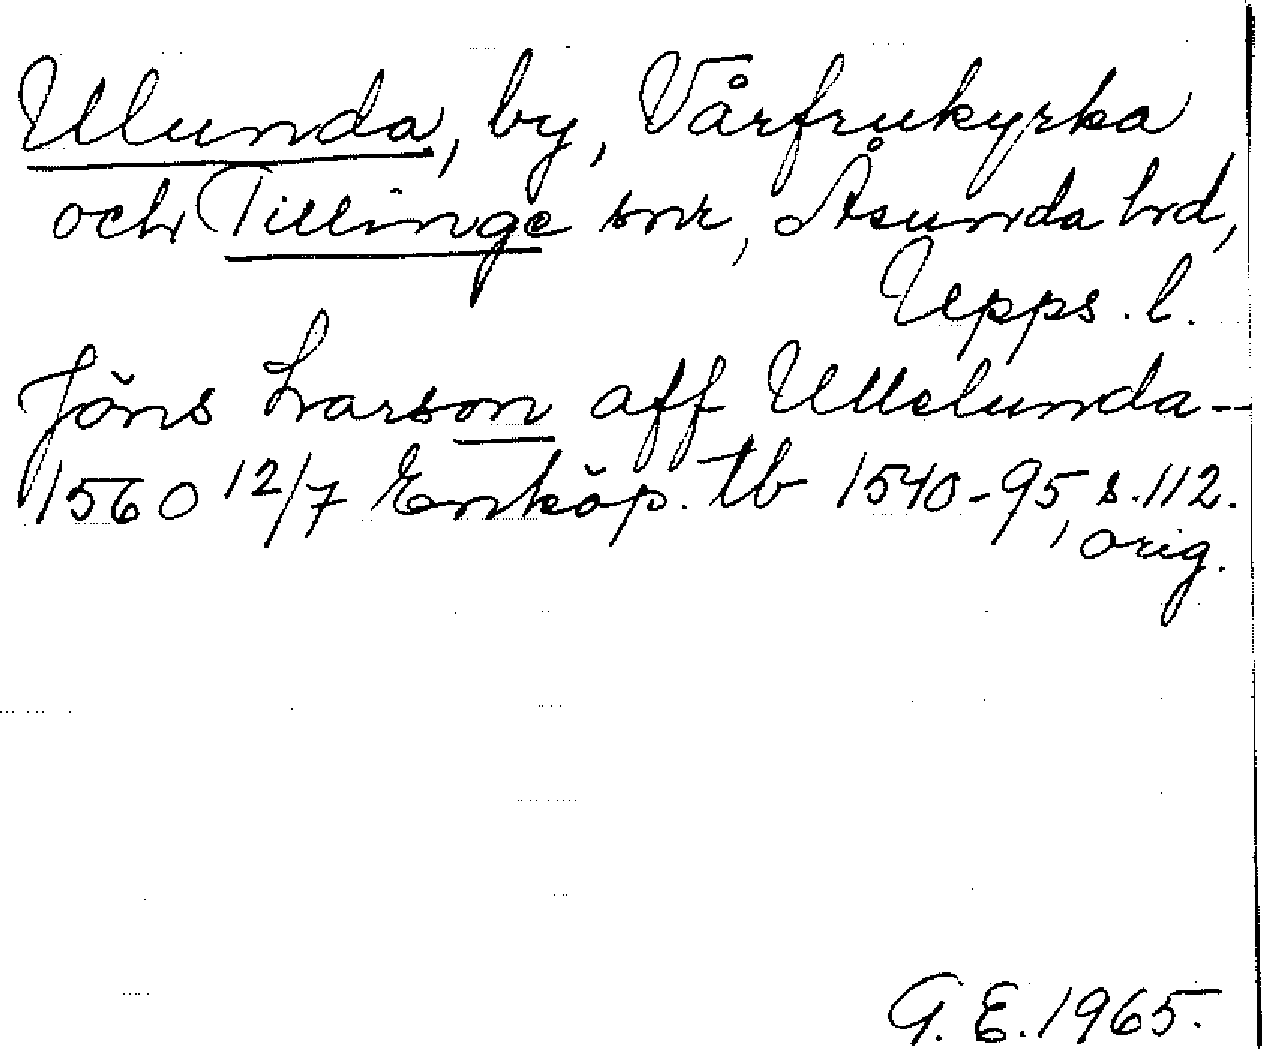 Ulunda, by, Vårfrukyrka
och Tillinge snr, Åsunda hd,
Upps. l.
Jöns Larson aff Ullelunda -
1560 12/7 Enköp. tb 1540-95, s. 112.
orig.
G. E. 1965.